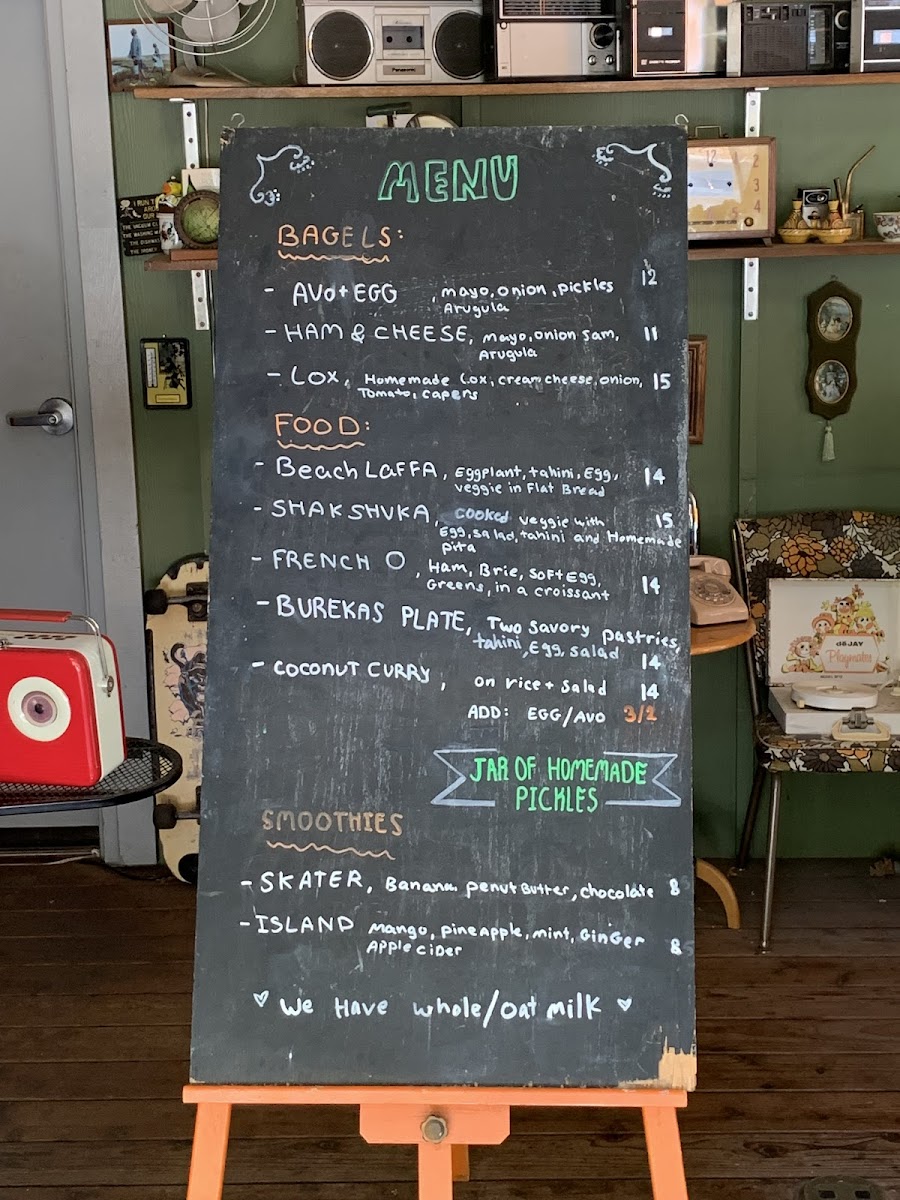 MENU
BAGELS:
- AVO + EGG , mayo, onion, pickles 12
Arugula
- HAM & CHEESE, mayo, onion Jam, 11
Arugula
- LOX, Homemade Lox, cream cheese, onion, 15
Tomato, capers
FOOD:
- Beach LaFFA, Eggplant, tahini, Egg, 14
veggie in Flat Bread
- SHAKSHUKA, cooked veggie with 15
Egg, salad, tahini and Homemade
pita
- FRENCH O , Ham, Brie, Soft Egg,
Greens, in a croissant 14
- BUREKAS PLATE, Two savory pastries,
tahini, Egg, salad 14
- COCONUT CURRY , on rice + salad 14
ADD: EGG/AVO 3/2
JAR OF HOMEMADE
PICKLES
SMOOTHIES
- SKATER, Banana, penut Butter, chocolate 8
- ISLAND mango, pineapple, mint, GinGer 8
Apple cider
We Have whole/oat milk
Panasonic
12
2
3
4
5
I RUN T
THE VACUUM C
THE WASHING M
deJAY
Playmates